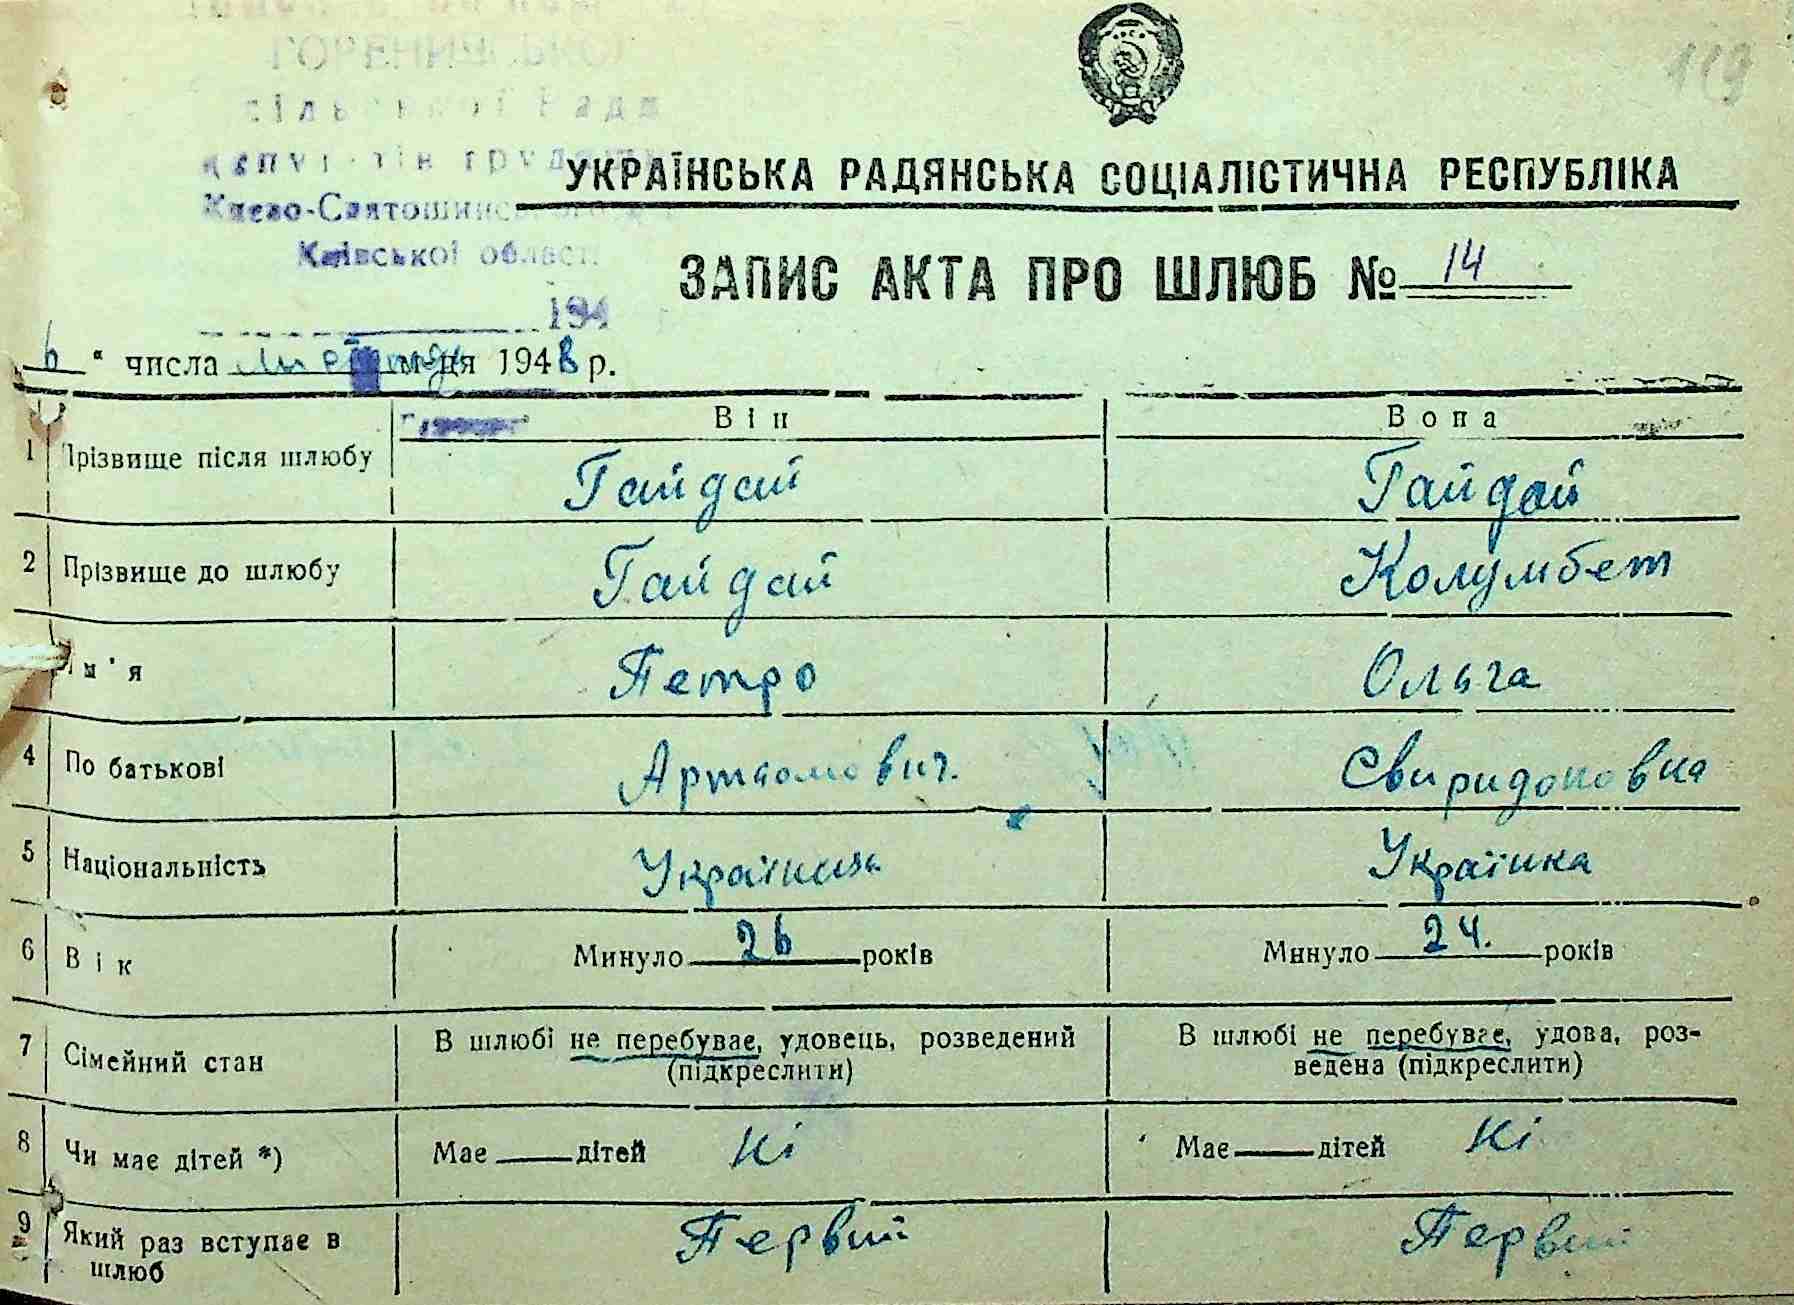 119
сільської Ради
Києво-Святошинського
Київської області
194
УКРАЇНСЬКА РАДЯНСЬКА СОЦІАЛІСТИЧНА РЕСПУБЛІКА
ЗАПИС АКТА ПРО ШЛЮБ № 14
6 " числа м-ця 1948 р.
Він Вона
1 Прізвище після шлюбу Гайдай Гайдай
2 Прізвище до шлюбу Гайдай Колумбет
Ім'я Петро Ольга
4 По батькові Артьомович. Свиридоновна
5 Національність Українець Українка
6 Вік Минуло 26 років Минуло 24. років
7 Сімейний стан В шлюбі не перебуває, удовець, розведений (підкреслити) В шлюбі не перебуває, удова, роз-
ведена (підкреслити)
8 Чи має дітей *) Має дітей Ні Має дітей Ні
9 Який раз вступає в шлюб Первий Первий